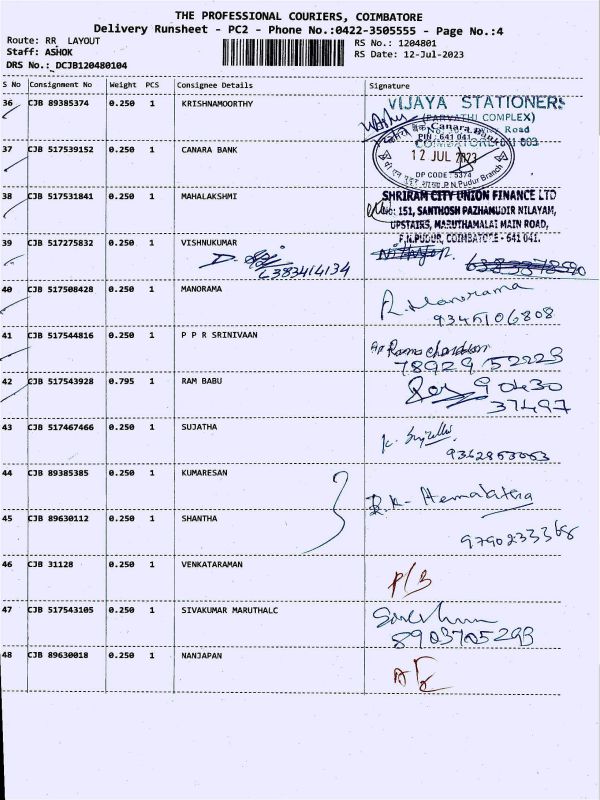 THE PROFESSIONAL COURIERS, COIMBATORE
Delivery Runsheet - PC2 - Phone No.:0422-3505555 - Page No.:4
Route: RR LAYOUT
Staff: ASHOK
DRS No.: DCJB120480104
RS No.: 1204801
RS Date: 12-Jul-2023
S No Consignment No Weight PCS Consignee Details Signature
36 CJB 89385374 0.250 1 KRISHNAMOORTHY
VIJAYA STATIONERS
(PARVATHI COMPLEX)
Road
37 CJB 517539152 0.250 1 CANARA BANK
Canara
PIN: 641 041
12 JUL 2023
DP CODE: 5374
P.N.Pudur Branch
38 CJB 517531841 0.250 1 MAHALAKSHMI
SHRIRAM CITY UNION FINANCE LTD
No: 151, SANTHOSH PAZHAMUDIR NILAYAM,
UPSTAIRS, MARUTHAMALAI MAIN ROAD,
P.N.PUDUR, COIMBATORE - 641 041.
39 CJB 517275832 0.250 1 VISHNUKUMAR
6383414134
40 CJB 517508428 0.250 1 MANORAMA
R. Manorama
9345106808
41 CJB 517544816 0.250 1 P P R SRINIVAAN
Rama chandran
78929 52223
42 CJB 517543928 0.795 1 RAM BABU
90430
37497
43 CJB 517467466 0.250 1 SUJATHA
44 CJB 89385385 0.250 1 KUMARESAN
R.K- Hemalatha
45 CJB 89630112 0.250 1 SHANTHA
9790233368
46 CJB 31128 0.250 1 VENKATARAMAN
P/B
47 CJB 517543105 0.250 1 SIVAKUMAR MARUTHALC
8903705293
48 CJB 89630018 0.250 1 NANJAPAN